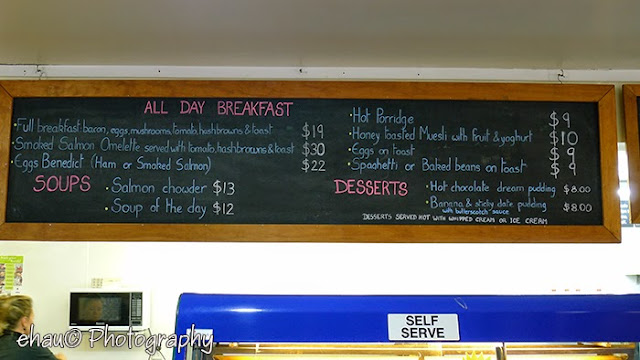 ALL DAY BREAKFAST
• Full breakfast: bacon, eggs, mushrooms, tomato, hashbrowns & toast $19
• Smoked Salmon Omelette served with tomato, hashbrowns & toast $30
• Eggs Benedict (Ham or Smoked Salmon) $22
• Hot Porridge $9
• Honey toasted Muesli with fruit & yoghurt $10
• Eggs on Toast $9
• Spaghetti or Baked beans on toast $9
SOUPS
• Salmon chowder $13
• Soup of the day $12
DESSERTS
• Hot chocolate dream pudding $8.00
• Banana & sticky date pudding $8.00
with butterscotch sauce
DESSERTS SERVED HOT WITH WHIPPED CREAM OR ICE CREAM
SELF
SERVE
ehau© Photography